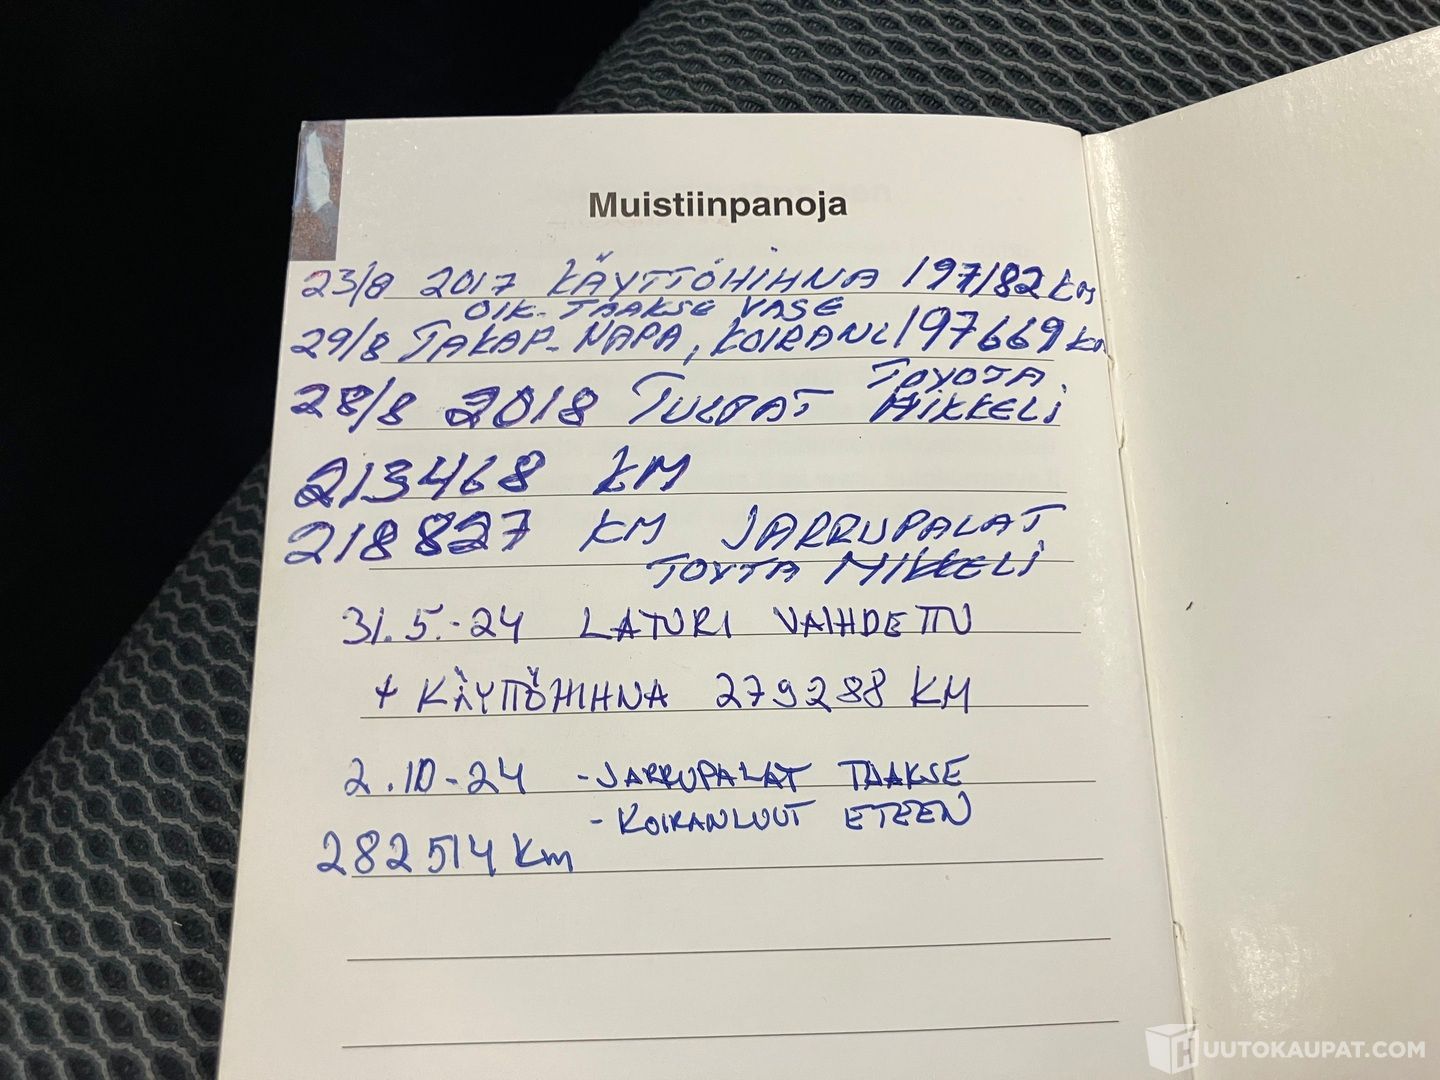 Muistiinpanoja
23/8 2017 KÄYTTÖHIHNA 197182 km
OIK. TAAKSE VASE
29/8 TAKAP. NAPA, KOIRANL 197669 km
TOYOTA
28/8 2018 TULPAT MIKKELI
213468 KM
218827 KM JARRUPALAT
TOYTA MIKKELI
31.5.-24 LATURI VAIHDETTU
+ KÄYTTÖHIHNA 279288 KM
2.10-24 -JARRUPALAT TAAKSE
- KOIRANLUUT ETEEN
282514 Km
HUUTOKAUPAT.COM